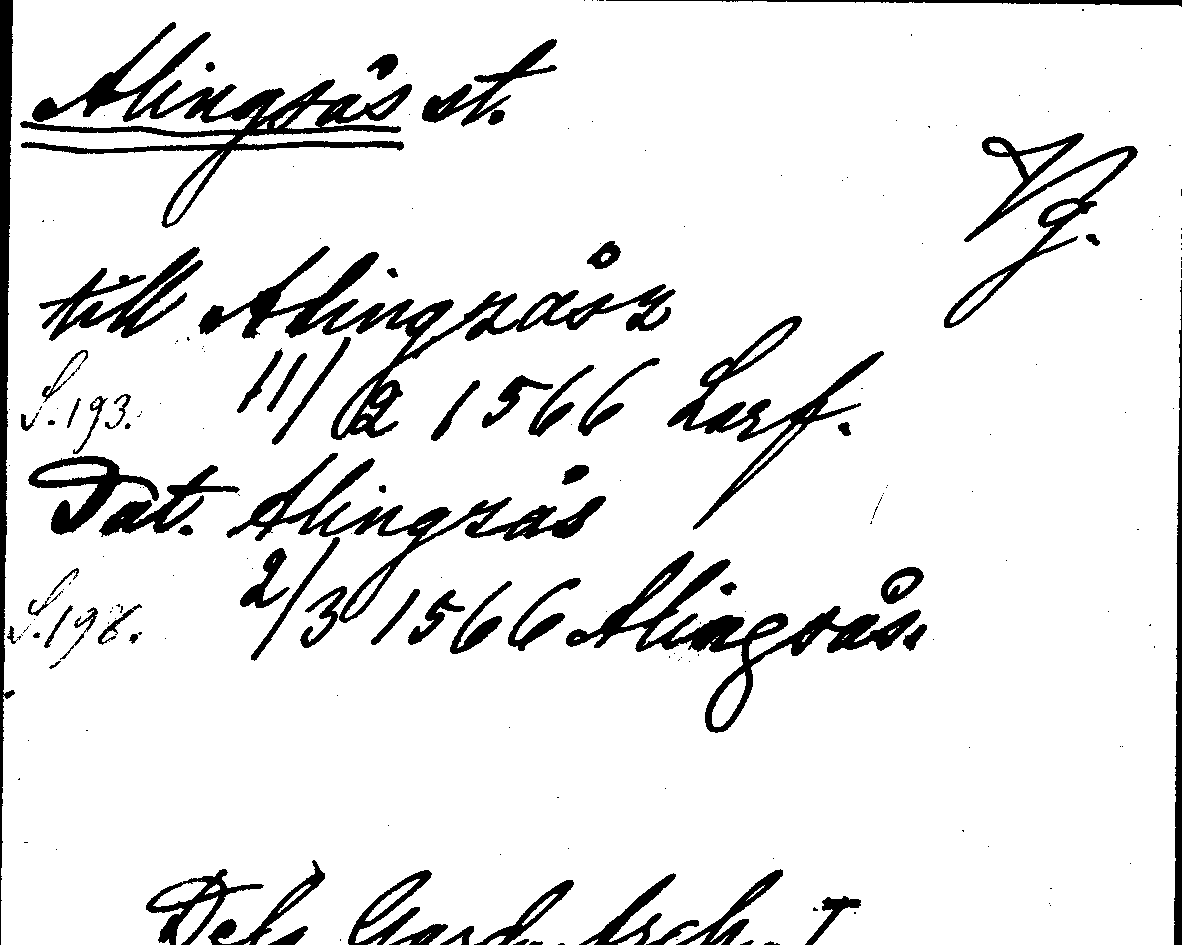 Alingsås st.
Vg.
till Alingzåsz
S. 193. 11/2 1566 Larf.
Dat. Alingzås
S. 198. 2/3 1566 Alingsås.
Dela Gard. Arch. I